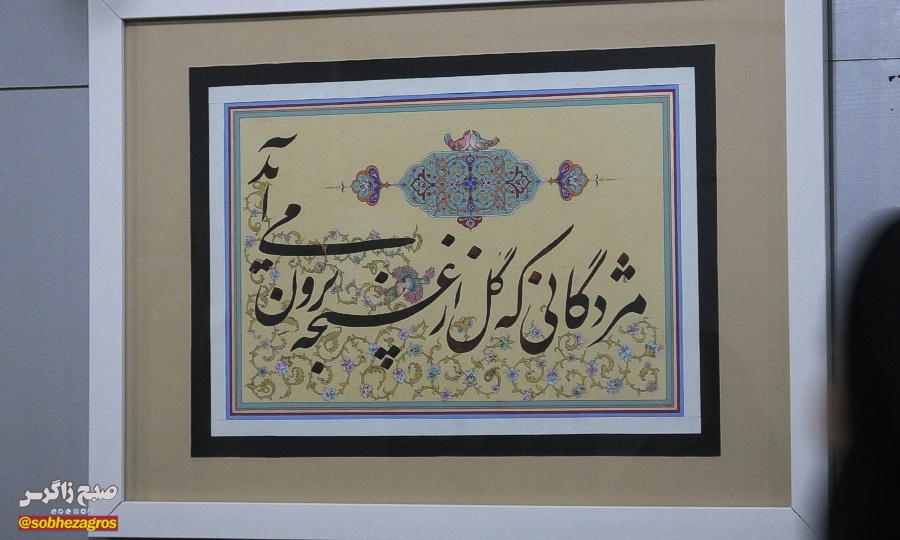 مژدگانی که گل از غنچه برون می آید
صبح زاگرس
@sobhezagros